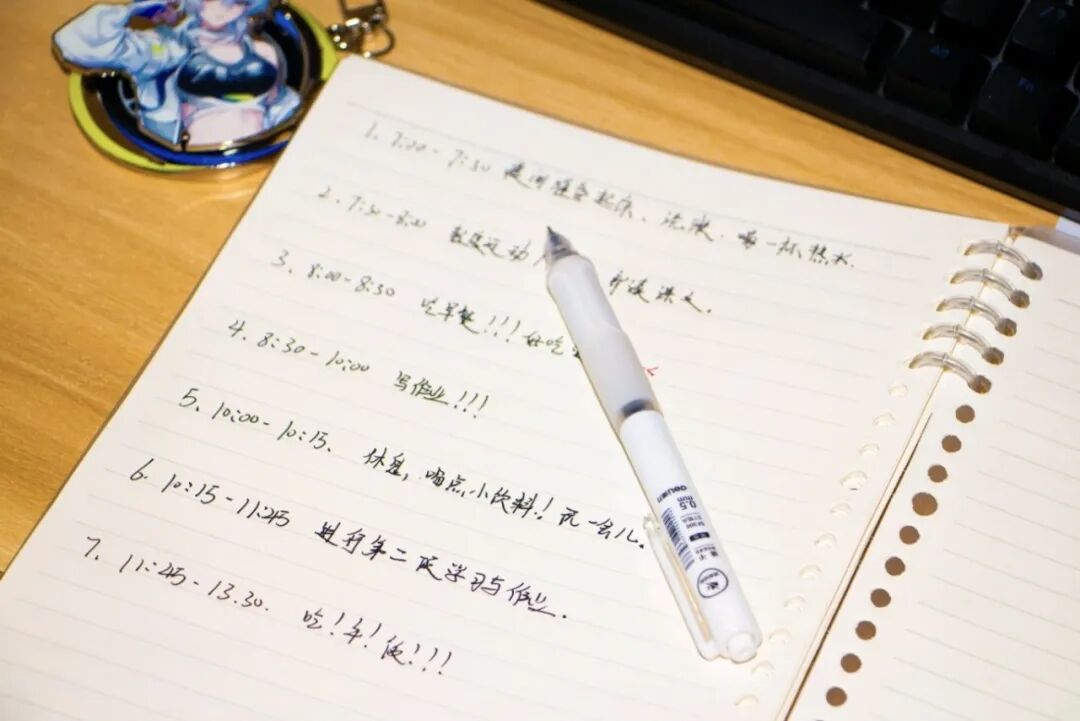 1. 7:00-7:30 起床、洗漱、喝一杯热水.
2. 7:30-8:00 运动 课文.
3. 8:00-8:30 吃早餐!!!好吃
4. 8:30-10:00 写作业!!!
5. 10:00-10:15、休息,喝点小饮料!玩一会儿.
6. 10:15-11:45 进行第二阶段学习与作业.
7. 11:45-13.30. 吃!午!饭!!!
deli
0.5
mm